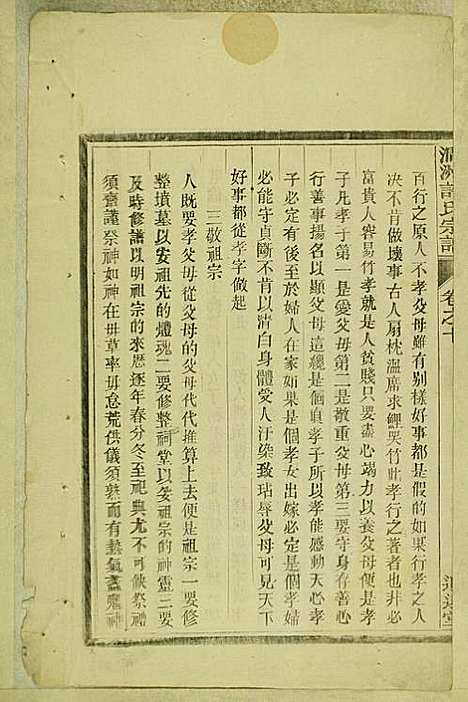 許氏宗譜
卷之十
百行之原人不孝父母雖有別樣好事都是假的如果行孝之人
决不肯做壞事古人扇枕溫席求鯉哭竹此孝行之著者也非必
富貴人容易行孝就是人貧賤只要盡心竭力以養父母便是孝
子凡孝子第一是愛父母第二是敬重父母第三要守身存善心
行善事揚名以顯父母這纔是個真孝子所以孝能感動天心孝
子必定有後至於婦人在家如果是個孝女出嫁必定是個孝婦
必能守貞斷不肯以清白身體愛人汙染致玷辱父母可見天下
好事都從孝字做起
三敬祖宗
人既要孝父母從父母的父母代代推算上去便是祖宗一要修
整墳墓以安祖先的體魂二要修整祠堂以安祖宗的神靈三要
及時修譜以明祖宗的來歷逐年春分冬至祀典尤不可缺祭禮
須齋謹祭神如神在毋草率毋怠荒供儀須熟而有熱氣蓋鬼神